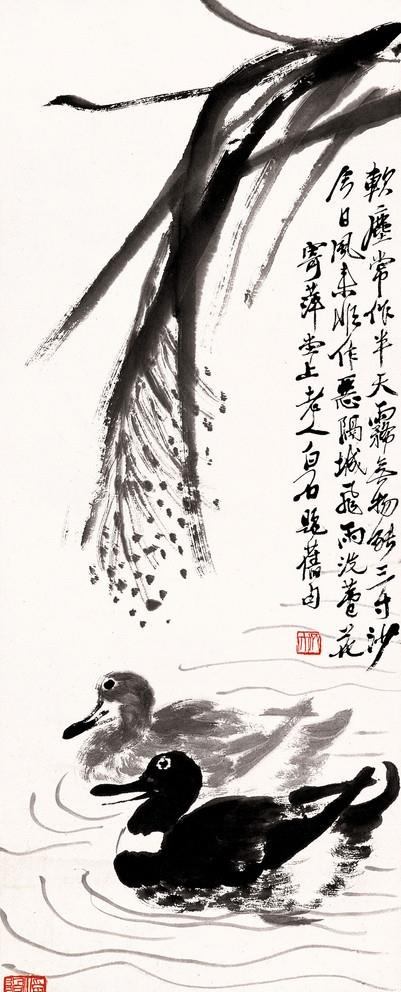 軟塵常作半天霧無物能三寸沙
今日風來作惡隔城飛雨洗蘆花
寄萍堂上老人白石題舊句